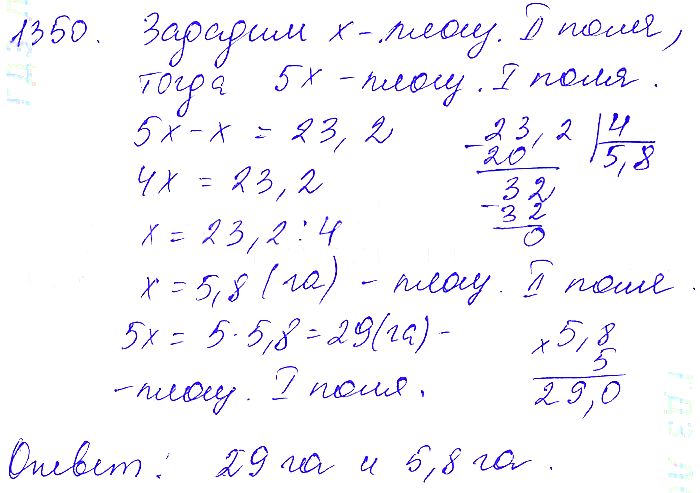 1350. Зададим x - площ. II поля,
тогда 5x - площ. I поля.
5x - x = 23,2
4x = 23,2
x = 23,2 : 4
x = 5,8 (га) - площ. II поля.
5x = 5 · 5,8 = 29 (га) -
- площ. I поля.
23,2 | 4
- 20 5,8
32
- 32
0
x 5,8
5
29,0
Ответ: 29 га и 5,8 га.